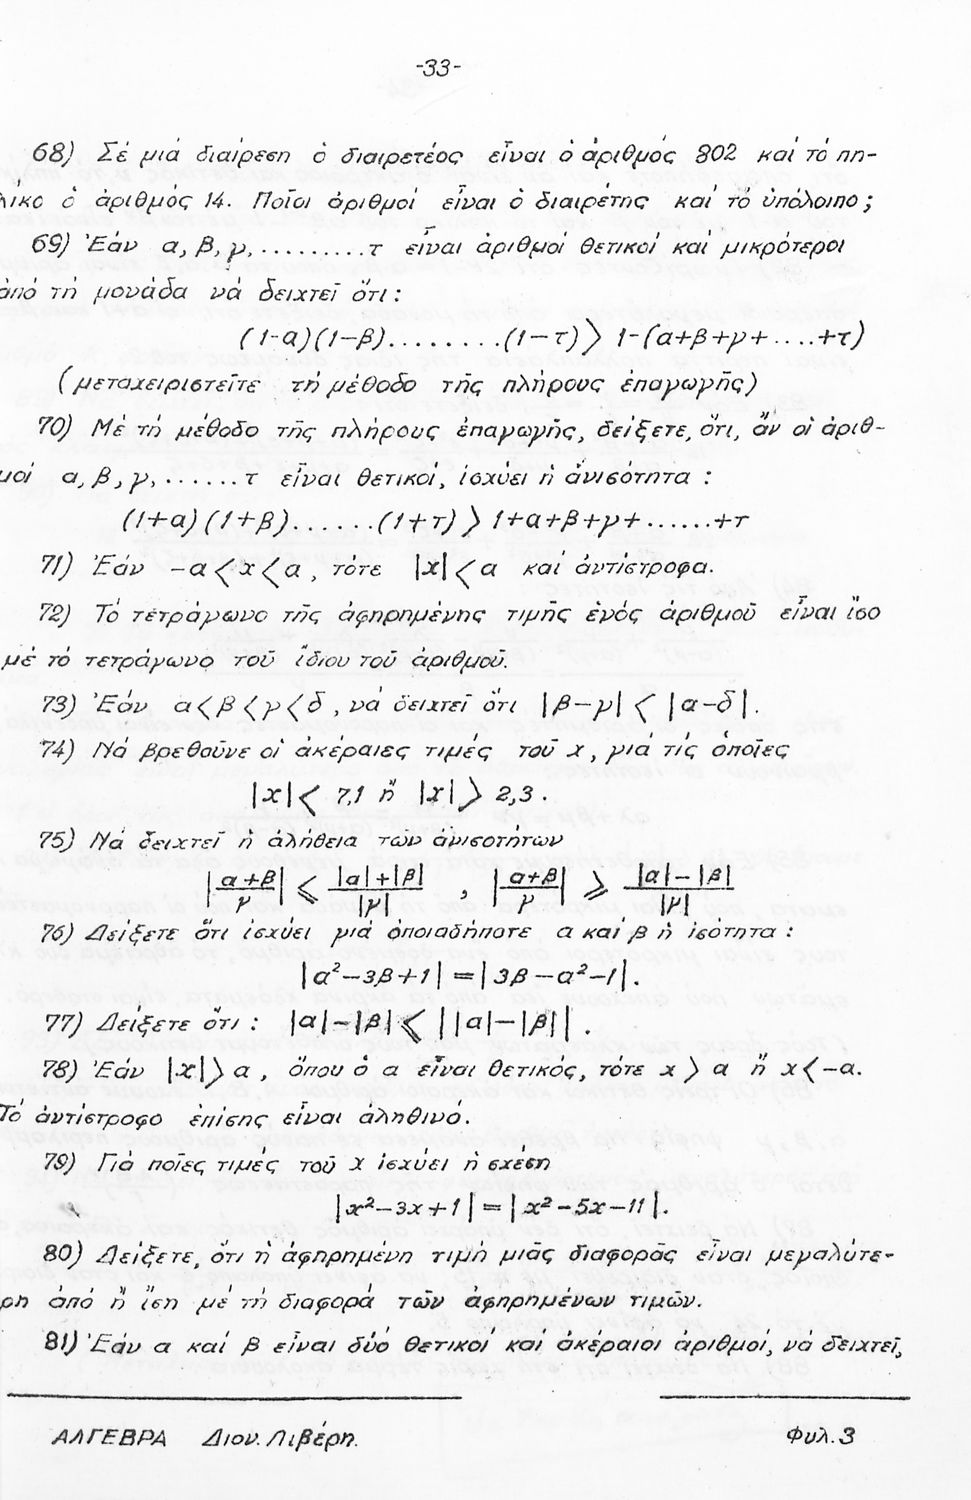 -33-
68) Σέ μιά διαίρεση ὁ διαιρετέος εἶναι ὁ ἀριθμός 802 καί τό πη-
λίκο ὁ ἀριθμός 14. Ποῖοι ἀριθμοί εἶναι ὁ διαιρέτης καί τό ὑπόλοιπο;
69) Ἐάν α, β, γ, .......... τ εἶναι ἀριθμοί θετικοί καί μικρότεροι
ἀπό τή μονάδα νά δειχτεῖ ὅτι:
(1-α)(1-β).........(1-τ) > 1-(α+β+γ+....+τ)
(μεταχειριστεῖτε τή μέθοδο τῆς πλήρους ἐπαγωγῆς)
70) Μέ τή μέθοδο τῆς πλήρους ἐπαγωγῆς, δείξετε, ὅτι, ἄν οἱ ἀριθ-
μοί α, β, γ, ....... τ εἶναι θετικοί, ἰσχύει ἡ ἀνισότητα :
(1+α)(1+β)......(1+τ) > 1+α+β+γ+......+τ
71) Ἐάν -α < x < α, τότε |x| < α καί ἀντίστροφα.
72) Τό τετράγωνο τῆς ἀφηρημένης τιμῆς ἑνός ἀριθμοῦ εἶναι ἴσο
μέ τό τετράγωνο τοῦ ἴδιου τοῦ ἀριθμοῦ.
73) Ἐάν α < β < γ < δ, νά δειχτεῖ ὅτι |β-γ| < |α-δ|.
74) Νά βρεθοῦνε οἱ ἀκέραιες τιμές τοῦ x, γιά τίς ὁποῖες
|x| < 7,1 ἤ |x| > 2,3.
75) Νά δειχτεῖ ἡ ἀλήθεια τῶν ἀνισοτήτων
|(α+β)/γ| ⩽ (|α|+|β|)/|γ| , |(α+β)/γ| ⩾ (|α|-|β|)/|γ|
76) Δείξετε ὅτι ἰσχύει μιά ὁποιαδήποτε α καί β ἡ ἰσότητα :
|α²-3β+1| = |3β-α²-1|.
77) Δείξετε ὅτι : |α|-|β| ⩽ ||α|-|β||.
78) Ἐάν |x| > α, ὅπου ὁ α εἶναι θετικός, τότε x > α ἤ x < -α.
Τό ἀντίστροφο ἐπίσης εἶναι ἀληθινό.
79) Γιά ποῖες τιμές τοῦ x ἰσχύει ἡ σχέση
|x²-3x+1| = |x²-5x-11|.
80) Δείξετε, ὅτι ἡ ἀφηρημένη τιμή μιᾶς διαφορᾶς εἶναι μεγαλύτε-
ρη ἀπό ἤ ἴση μέ τή διαφορά τῶν ἀφηρημένων τιμῶν.
81) Ἐάν α καί β εἶναι δύο θετικοί καί ἀκέραιοι ἀριθμοί, νά δειχτεῖ,
ΑΛΓΕΒΡΑ Διον. Λιβέρη. Φυλ. 3